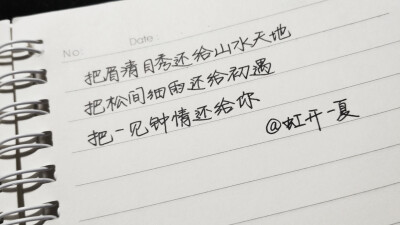 No:    Date:
把眉清目秀还给山水天地
把松间细雨还给初遇
把一见钟情还给你
@虹开一夏